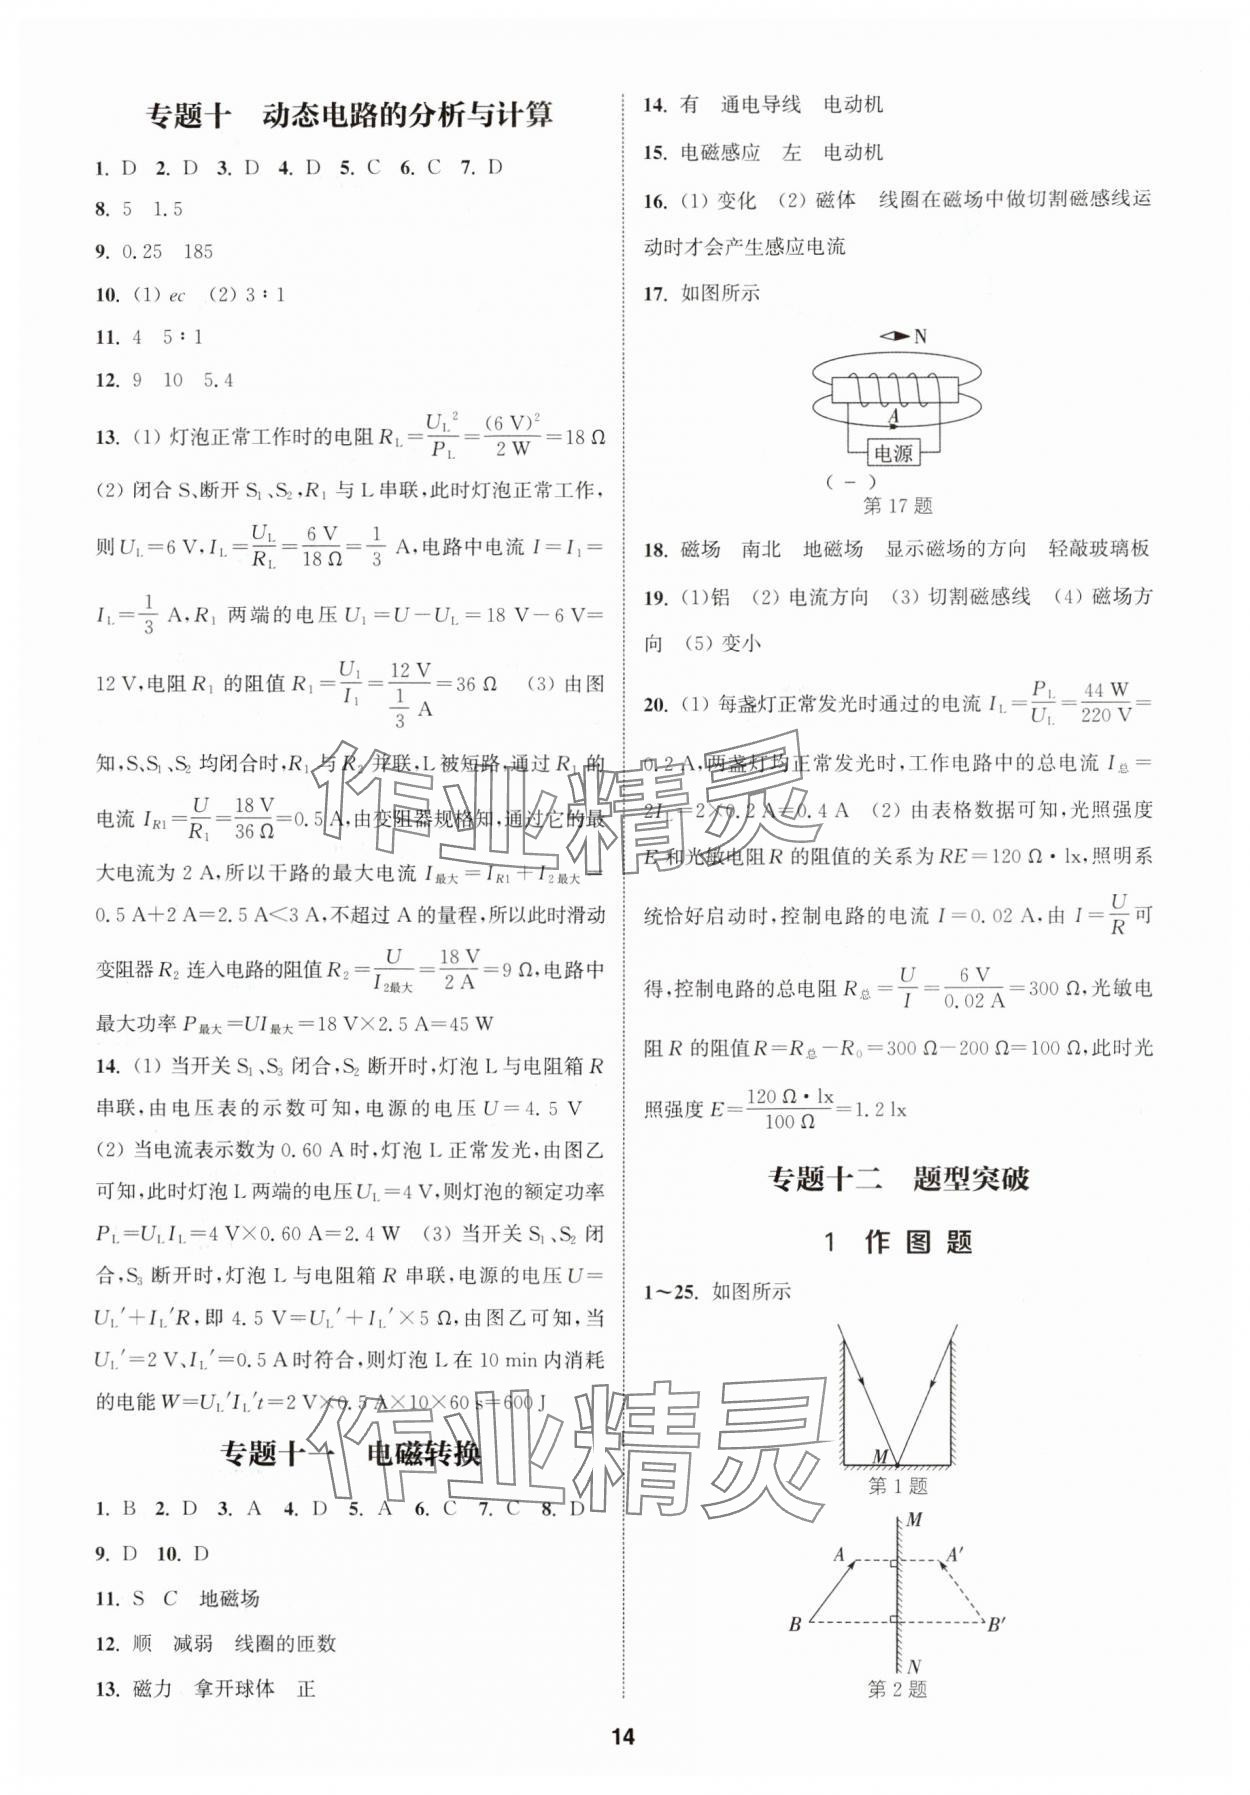 专题十　动态电路的分析与计算
1. D　2. D　3. D　4. D　5. C　6. C　7. D
8. 5　1.5
9. 0.25　185
10. (1) ec　(2) 3∶1
11. 4　5∶1
12. 9　10　5.4
13. (1) 灯泡正常工作时的电阻 R_L=U_L²/P_L=(6 V)²/2 W=18 Ω
(2) 闭合 S、断开 S₁、S₂,R₁ 与 L 串联,此时灯泡正常工作,
则 U_L=6 V,I_L=U_L/R_L=6 V/18 Ω=1/3 A,电路中电流 I=I₁=
I_L=1/3 A,R₁ 两端的电压 U₁=U-U_L=18 V-6 V=
12 V,电阻 R₁ 的阻值 R₁=U₁/I₁=12 V/(1/3 A)=36 Ω　(3) 由图
知,S、S₁、S₂ 均闭合时,R₁ 与 R₂ 并联,L 被短路,通过 R₁ 的
电流 I_R1=U/R₁=18 V/36 Ω=0.5 A,由变阻器规格知,通过它的最
大电流为 2 A,所以干路的最大电流 I最大=I_R1+I₂最大=
0.5 A+2 A=2.5 A<3 A,不超过 A 的量程,所以此时滑动
变阻器 R₂ 连入电路的阻值 R₂=U/I₂最大=18 V/2 A=9 Ω,电路中
最大功率 P最大=UI最大=18 V×2.5 A=45 W
14. (1) 当开关 S₁、S₃ 闭合,S₂ 断开时,灯泡 L 与电阻箱 R
串联,由电压表的示数可知,电源的电压 U=4.5 V
(2) 当电流表示数为 0.60 A 时,灯泡 L 正常发光,由图乙
可知,此时灯泡 L 两端的电压 U_L=4 V,则灯泡的额定功率
P_L=U_L I_L=4 V×0.60 A=2.4 W　(3) 当开关 S₁、S₂ 闭
合,S₃ 断开时,灯泡 L 与电阻箱 R 串联,电源的电压 U=
U_L′+I_L′R,即 4.5 V=U_L′+I_L′×5 Ω,由图乙可知,当
U_L′=2 V、I_L′=0.5 A 时符合,则灯泡 L 在 10 min 内消耗
的电能 W=U_L′I_L′t=2 V×0.5 A×10×60 s=600 J
专题十一　电磁转换
1. B　2. D　3. A　4. D　5. A　6. C　7. C　8. D
9. D　10. D
11. S　C　地磁场
12. 顺　减弱　线圈的匝数
13. 磁力　拿开球体　正
14. 有　通电导线　电动机
15. 电磁感应　左　电动机
16. (1) 变化　(2) 磁体　线圈在磁场中做切割磁感线运
动时才会产生感应电流
17. 如图所示
N
A
电源
( - )
第 17 题
18. 磁场　南北　地磁场　显示磁场的方向　轻敲玻璃板
19. (1)铝　(2) 电流方向　(3) 切割磁感线　(4) 磁场方
向　(5) 变小
20. (1) 每盏灯正常发光时通过的电流 I_L=P_L/U_L=44 W/220 V=
0.2 A,两盏灯均正常发光时,工作电路中的总电流 I总=
2I_L=2×0.2 A=0.4 A　(2) 由表格数据可知,光照强度
E 和光敏电阻 R 的阻值的关系为 RE=120 Ω·lx,照明系
统恰好启动时,控制电路的电流 I=0.02 A,由 I=U/R 可
得,控制电路的总电阻 R总=U/I=6 V/0.02 A=300 Ω,光敏电
阻 R 的阻值 R=R总-R₀=300 Ω-200 Ω=100 Ω,此时光
照强度 E=120 Ω·lx/100 Ω=1.2 lx
专题十二　题型突破
1 作图题
1～25. 如图所示
M
第 1 题
M
A　A′
B　B′
N
第 2 题
14
作业精灵
作业精灵